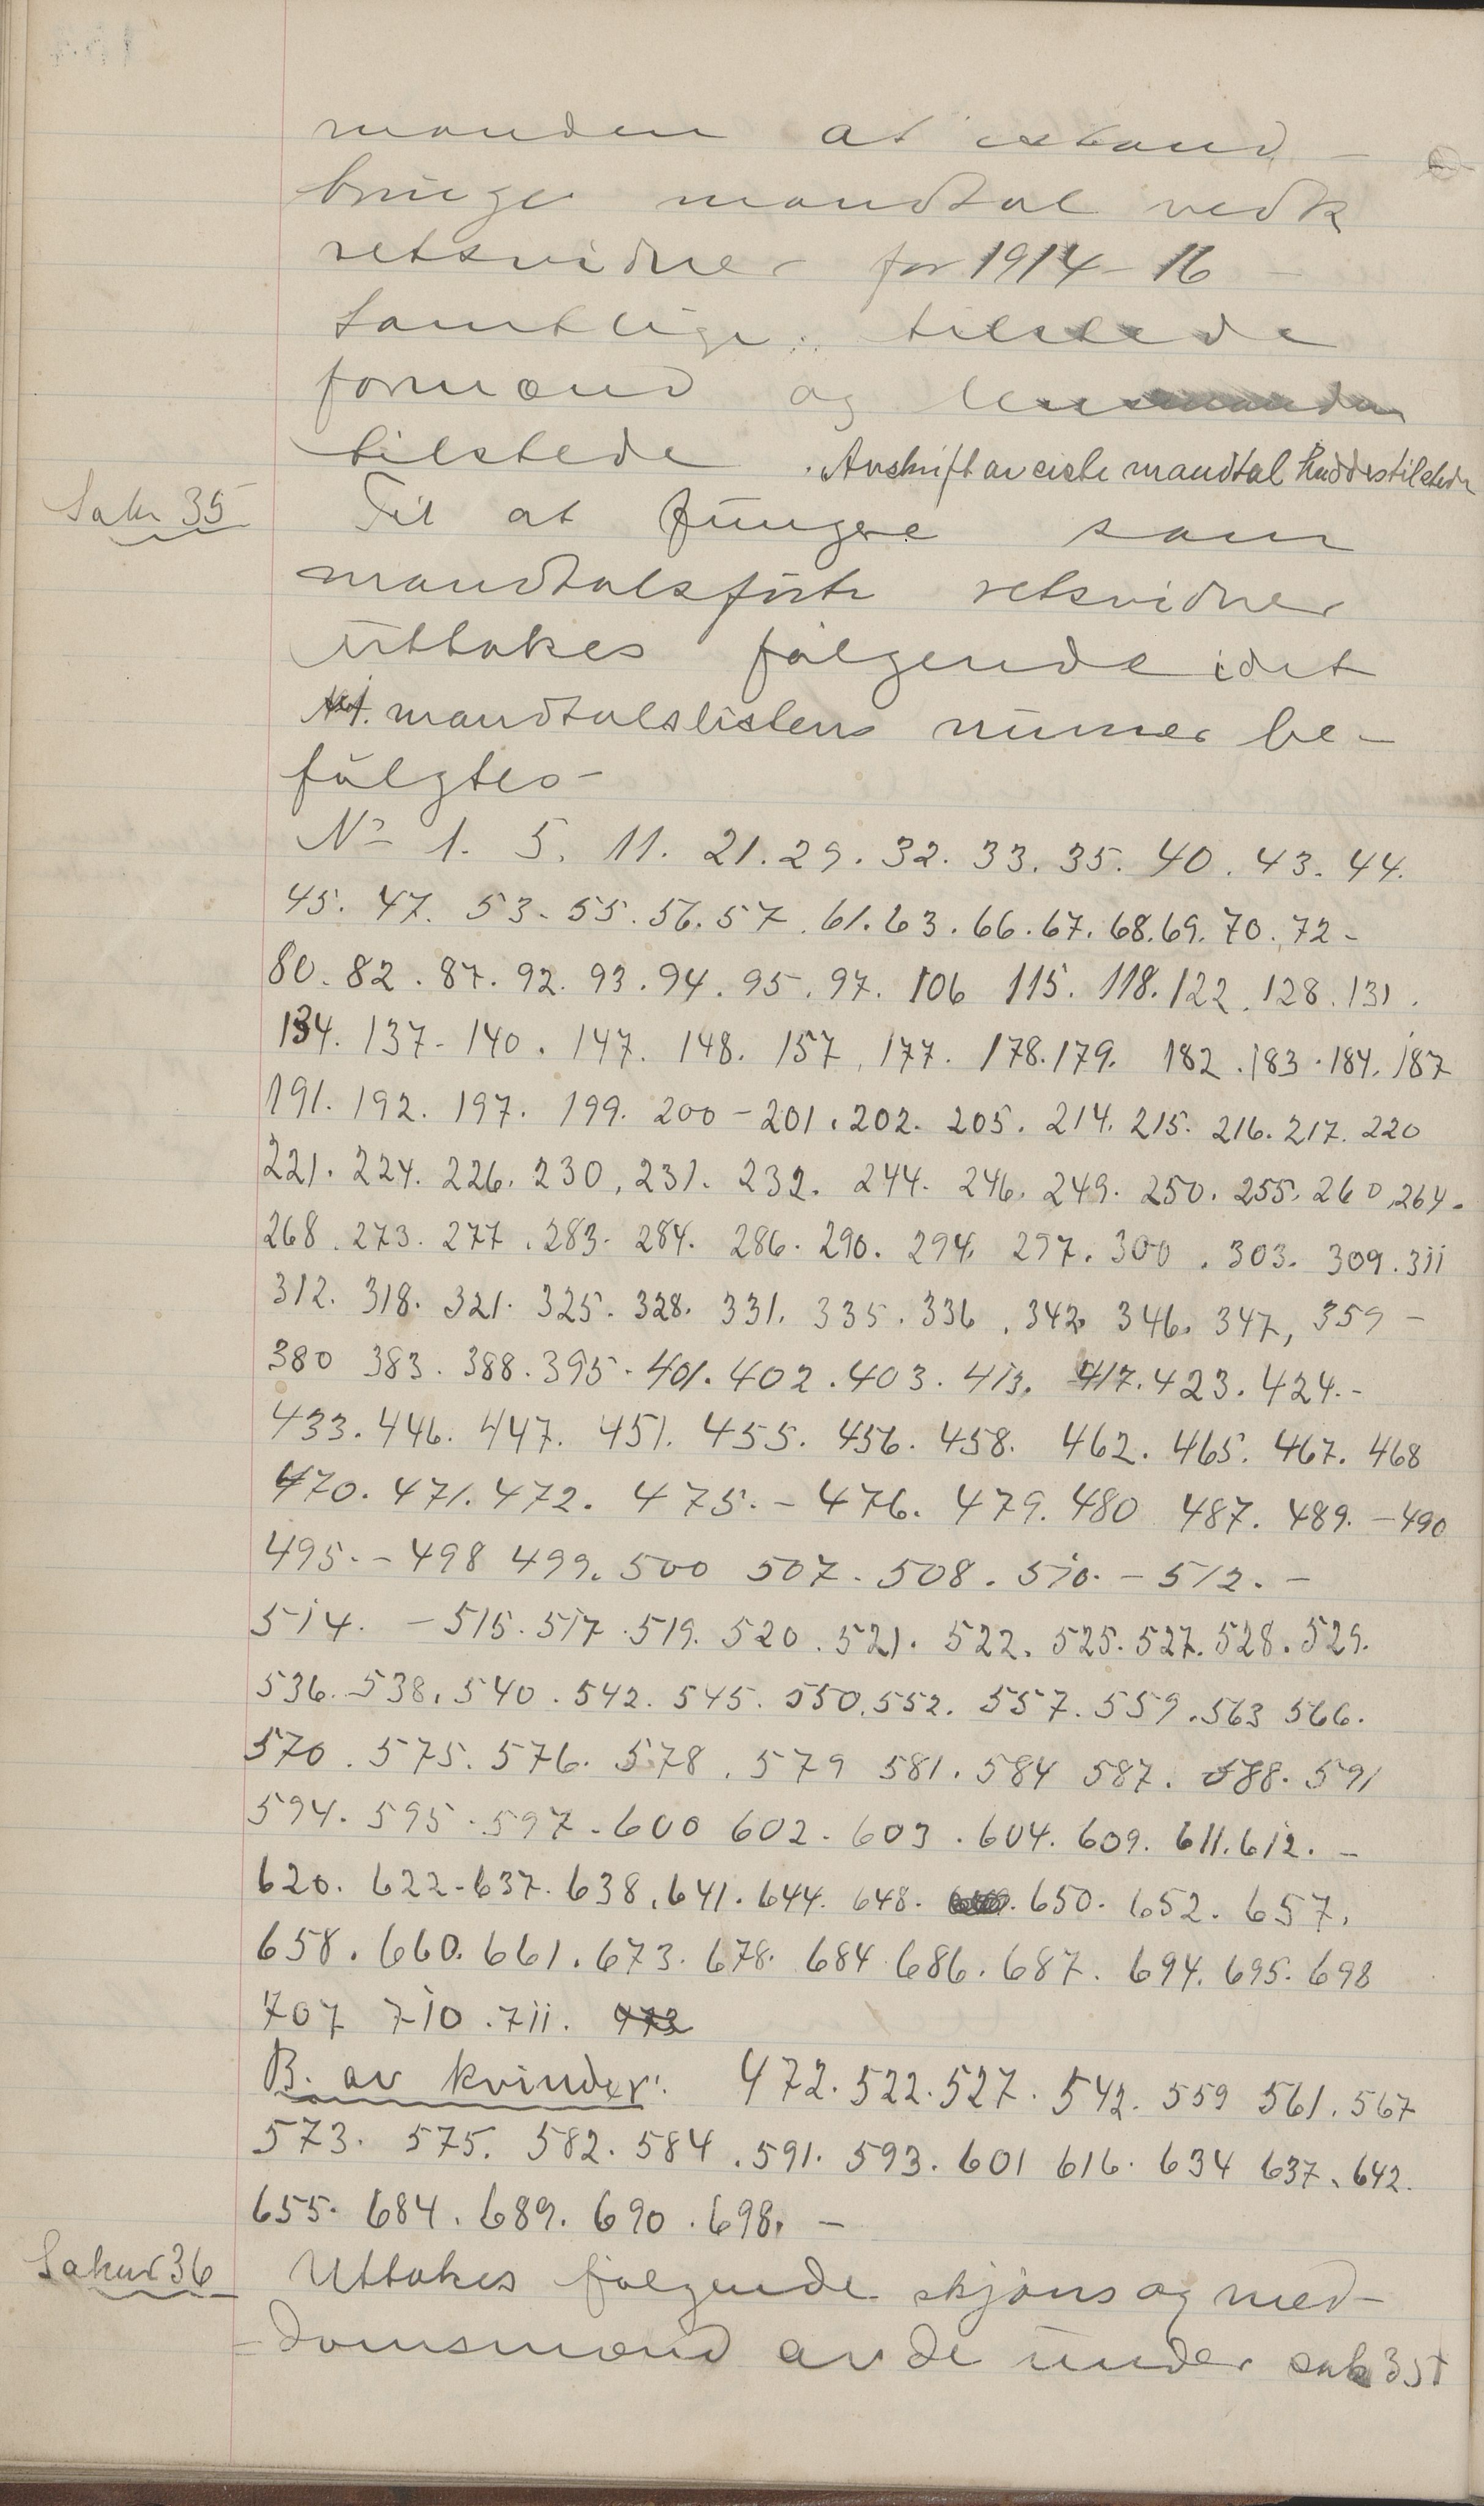 manden at istand-
bringe mandtal vedk
retsvidner for 1914-16 -
Samtlige tilstede
formænd og lensmanden
tilstede. Avskrift av siste mandtal haddes tilstede
Sak 35 Til at fungere som
mandtalsførte retsvidner
uttakes følgende idet
mandtalslistens numer be-
følgtes -
No 1. 5. 11. 21. 29. 32. 33. 35. 40. 43. 44.
45. 47. 53. 55. 56. 57. 61. 63. 66. 67. 68. 69. 70. 72 -
80. 82. 87. 92. 93. 94. 95. 97. 106 115. 118. 122. 128. 131.
134. 137 - 140. 147. 148. 157. 177. 178. 179. 182. 183. 184. 187
191. 192. 197. 199. 200 - 201. 202. 205. 214. 215. 216. 217. 220
221. 224. 226. 230. 231. 232. 244. 246. 249. 250. 255. 260. 264.
268. 273. 277. 283. 284. 286. 290. 294. 297. 300. 303. 309. 311
312. 318. 321. 325. 328. 331. 335. 336. 342. 346. 347, 359 -
380 383. 388. 395. 401. 402. 403. 413. 417. 423. 424. -
433. 446. 447. 451. 455. 456. 458. 462. 465. 467. 468
470. 471. 472. 475. - 476. 479. 480 487. 489. - 490
495. - 498 499. 500 507. 508. 510. - 512. -
514. - 515. 517. 519. 520. 521. 522. 525. 527. 528. 529.
536. 538. 540. 542. 545. 550. 552. 557. 559. 563 566.
570. 575. 576. 578. 579 581. 584 587. 588. 591
594. 595. 597. 600 602. 603. 604. 609. 611. 612. -
620. 622 - 637. 638. 641. 644. 648. 650. 652. 657.
658. 660. 661. 673. 678. 684 686. 687. 694. 695. 698
707 710. 711. 472
B. av kvinder: 472. 522. 527. 542. 559 561. 567
573. 575. 582. 584. 591. 593. 601 616. 634 637. 642.
655. 684. 689. 690. 698. -
Saknr 36 Uttakes følgende skjøns og med-
=domsmænd av de under sak 35